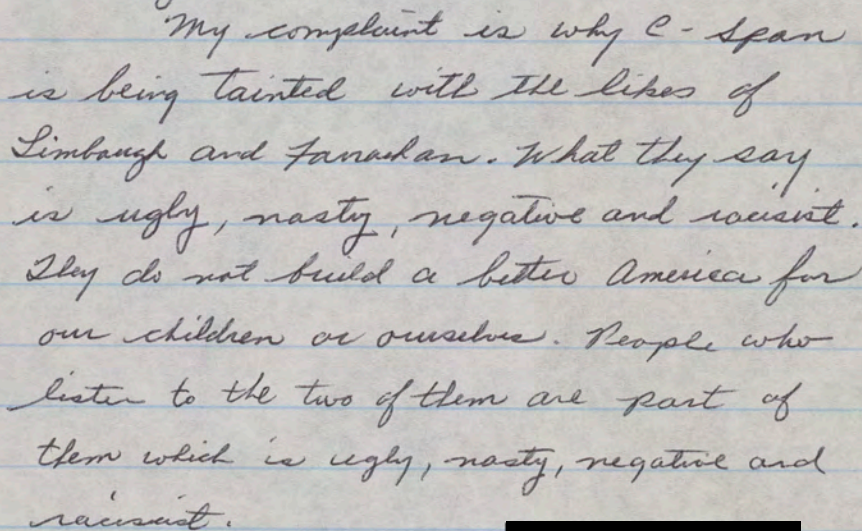 My complaint is why C-Span
is being tainted with the likes of
Limbaugh and Farrachan. What they say
is ugly, nasty, negative and racisist.
They do not build a better America for
our children or ourselves. People who
listen to the two of them are part of
them which is ugly, nasty, negative and
racisist.